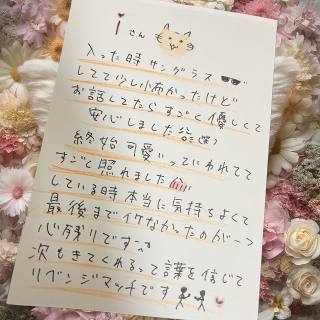 iさん
入った時サングラス
してて少し怖かったけど
お話してたらすごく優しくて
安心しました
終始可愛いっていわれてて
すごく照れました
している時本当に気持ちよくて
最後までイケなかったのが一つ
心残りです
次もきてくれるって言葉を信じて
リベンジマッチです